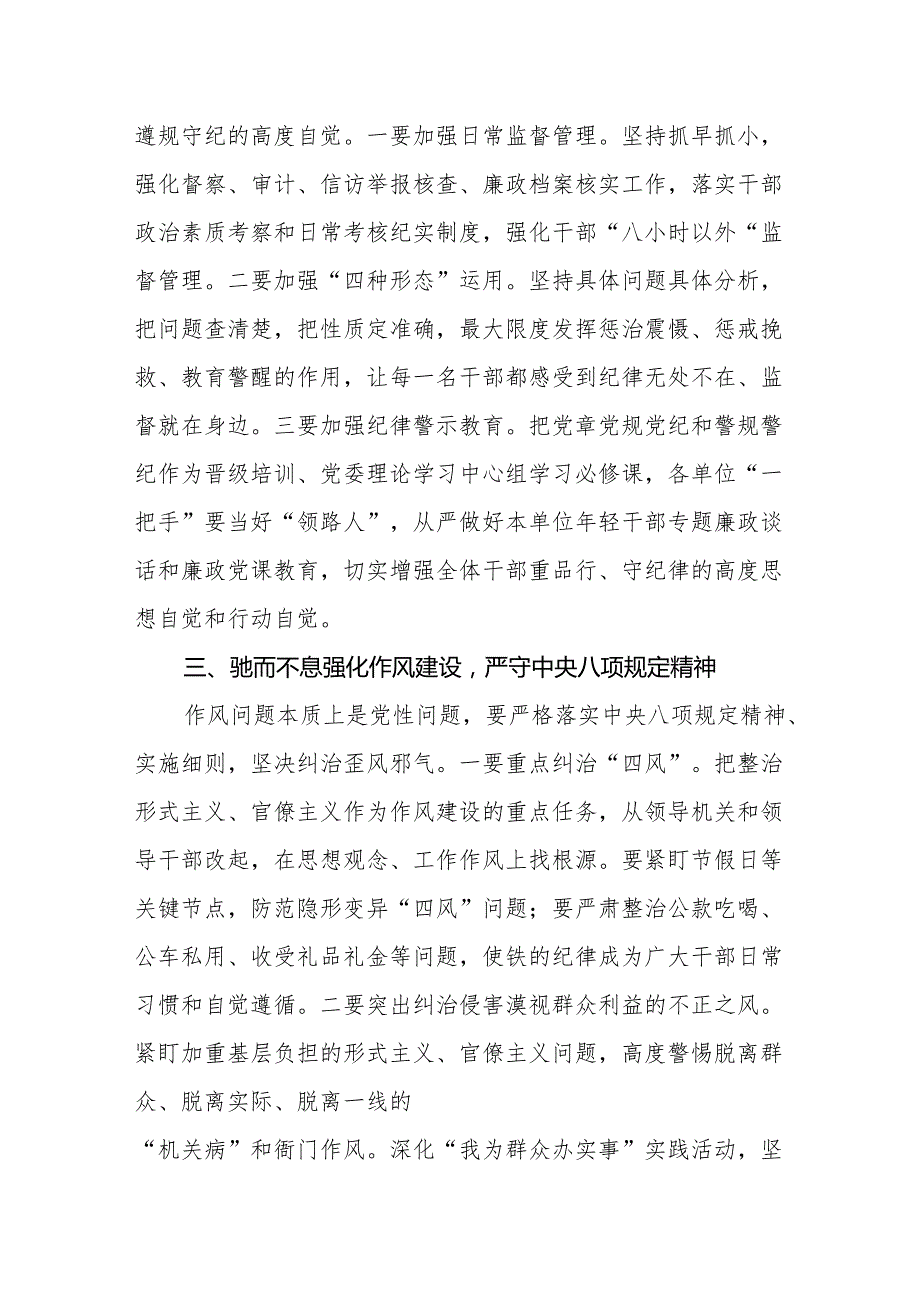 遵规守纪的高度自觉。一要加强日常监督管理。坚持抓早抓小，
强化督察、审计、信访举报核查、廉政档案核实工作，落实干部
政治素质考察和日常考核纪实制度，强化干部“八小时以外“监
督管理。二要加强“四种形态”运用。坚持具体问题具体分析，
把问题查清楚，把性质定准确，最大限度发挥惩治震慑、惩戒挽
救、教育警醒的作用，让每一名干部都感受到纪律无处不在、监
督就在身边。三要加强纪律警示教育。把党章党规党纪和警规警
纪作为晋级培训、党委理论学习中心组学习必修课，各单位“一
把手”要当好“领路人”，从严做好本单位年轻干部专题廉政谈
话和廉政党课教育，切实增强全体干部重品行、守纪律的高度思
想自觉和行动自觉。
三、驰而不息强化作风建设，严守中央八项规定精神
作风问题本质上是党性问题，要严格落实中央八项规定精神、
实施细则，坚决纠治歪风邪气。一要重点纠治“四风”。把整治
形式主义、官僚主义作为作风建设的重点任务，从领导机关和领
导干部改起，在思想观念、工作作风上找根源。要紧盯节假日等
关键节点，防范隐形变异“四风”问题；要严肃整治公款吃喝、
公车私用、收受礼品礼金等问题，使铁的纪律成为广大干部日常
习惯和自觉遵循。二要突出纠治侵害漠视群众利益的不正之风。
紧盯加重基层负担的形式主义、官僚主义问题，高度警惕脱离群
众、脱离实际、脱离一线的
“机关病”和衙门作风。深化“我为群众办实事”实践活动，坚